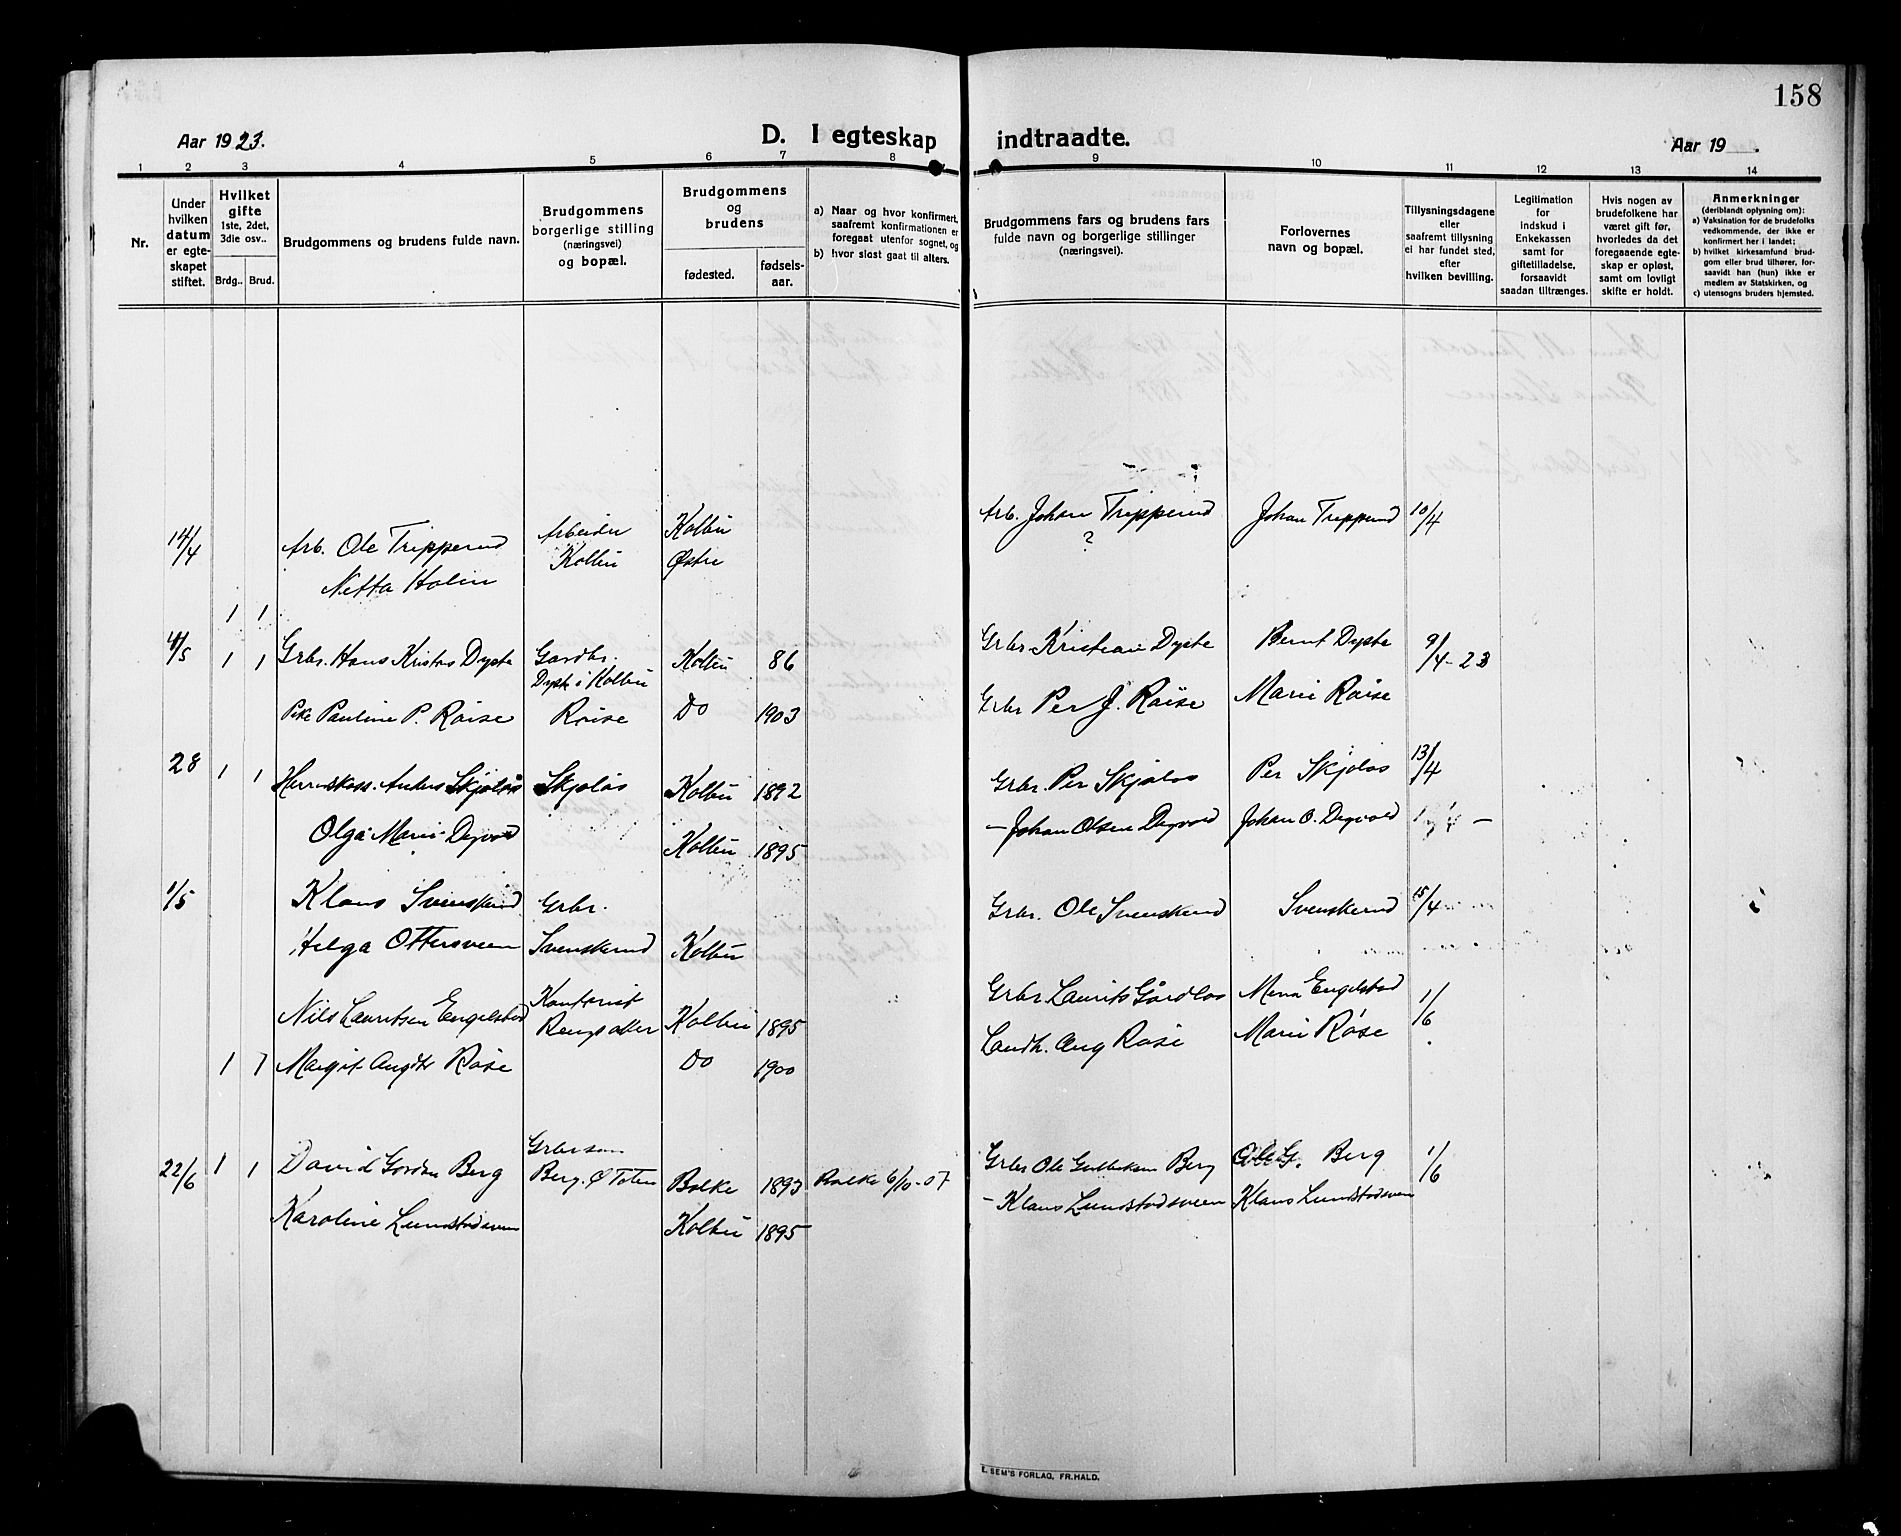 158
Aar 1923.
D. I egteskap indtraadte.
Aar 19 .
1 2 3 4 5 6 7 8 9 10 11 12 13 14
Nr.
Under hvilken datum er egte-skapet stiftet.
Hvilket gifte 1ste, 2det, 3die osv..
Brdg.. Brud.
Brudgommens og brudens fulde navn.
Brudgommens borgerlige stilling (næringsvei) og bopæl.
Brudgommens og brudens
fødested. fødsels-aar.
a) Naar og hvor konfirmert, saafremt konfirmationen er foregaat utenfor sognet, og
b) hvor sidst gaat til alters.
Brudgommens fars og brudens fars fulde navn og borgerlige stillinger (næringsvei).
Forlovernes navn og bopæl.
Tillysningsdagene eller saafremt tillysning ei har fundet sted, efter hvilken bevilling.
Legitimation for Indskud i Enkekassen samt for giftetilladelse, forsaavidt saadan tiltrænges.
Hvis nogen av brudefolkene har været gift før, hvorledes da det foregaaende egte-skap er opløst, samt om lovligt skifte er holdt.
Anmerkninger (deriblandt oplysning om):
a) Vaksination for de brudefolks vedkommende, der ikke er konfirmert her i landet;
b) hvilket kirkesamfund brud-gom eller brud tilhører, for-saavidt han (hun) ikke er medlem av Statskirken, og
c) utensogns bruders hjemsted.
14/4 Arb. Ole Tripperud Arbeider Kolbu Arb. Johan Tripperud Johan Tripperud 10/4
Netta Holen Kolbu Østre ?
1 1
4/5 1 1 Grbr. Hans Kristos Dyste Gardbr. Dyste i Kolbu Kolbu 86 Grbr. Kristian Dyste Bernt Dyste 9/4-23
Pike Pauline P. Røise Røise Do 1903 Grbr Per J. Røise Marie Røise
28 1 1 Anders Skjølås Skjølås Kolbu 1892 Grbr. Per Skjølås Per Skjølås 13/4
Olga Marie Kolbu 1895 - Johan Olsen Johan O. -
1/5 Klaus Svenskerud Grbr. Grbr. Ole Svenskerud Svenskerud 15/4
Helga Ottersveen Svenskerud Kolbu
Nils Lauritsen Engelstad Kontorist Kolbu 1895 Grbr Laurits Gårdlås Mina Engelstad 1/6
1 1 Margit Augdtr Røise Do 1900 Landh. Aug Røise Marie Røse
22/6 1 1 David Gordon Berg Grbrsøn Berg. Ø Toten Balke 1893 Balke 6/10-07 Grbr Ole Gulliksen Berg Ole G. Berg 1/6
Karoline Lundstadsveen Kolbu 1895 - Klaus Lundstadsveen Klaus Lundstadsveen
E. SEM'S FORLAG, FR.HALD.